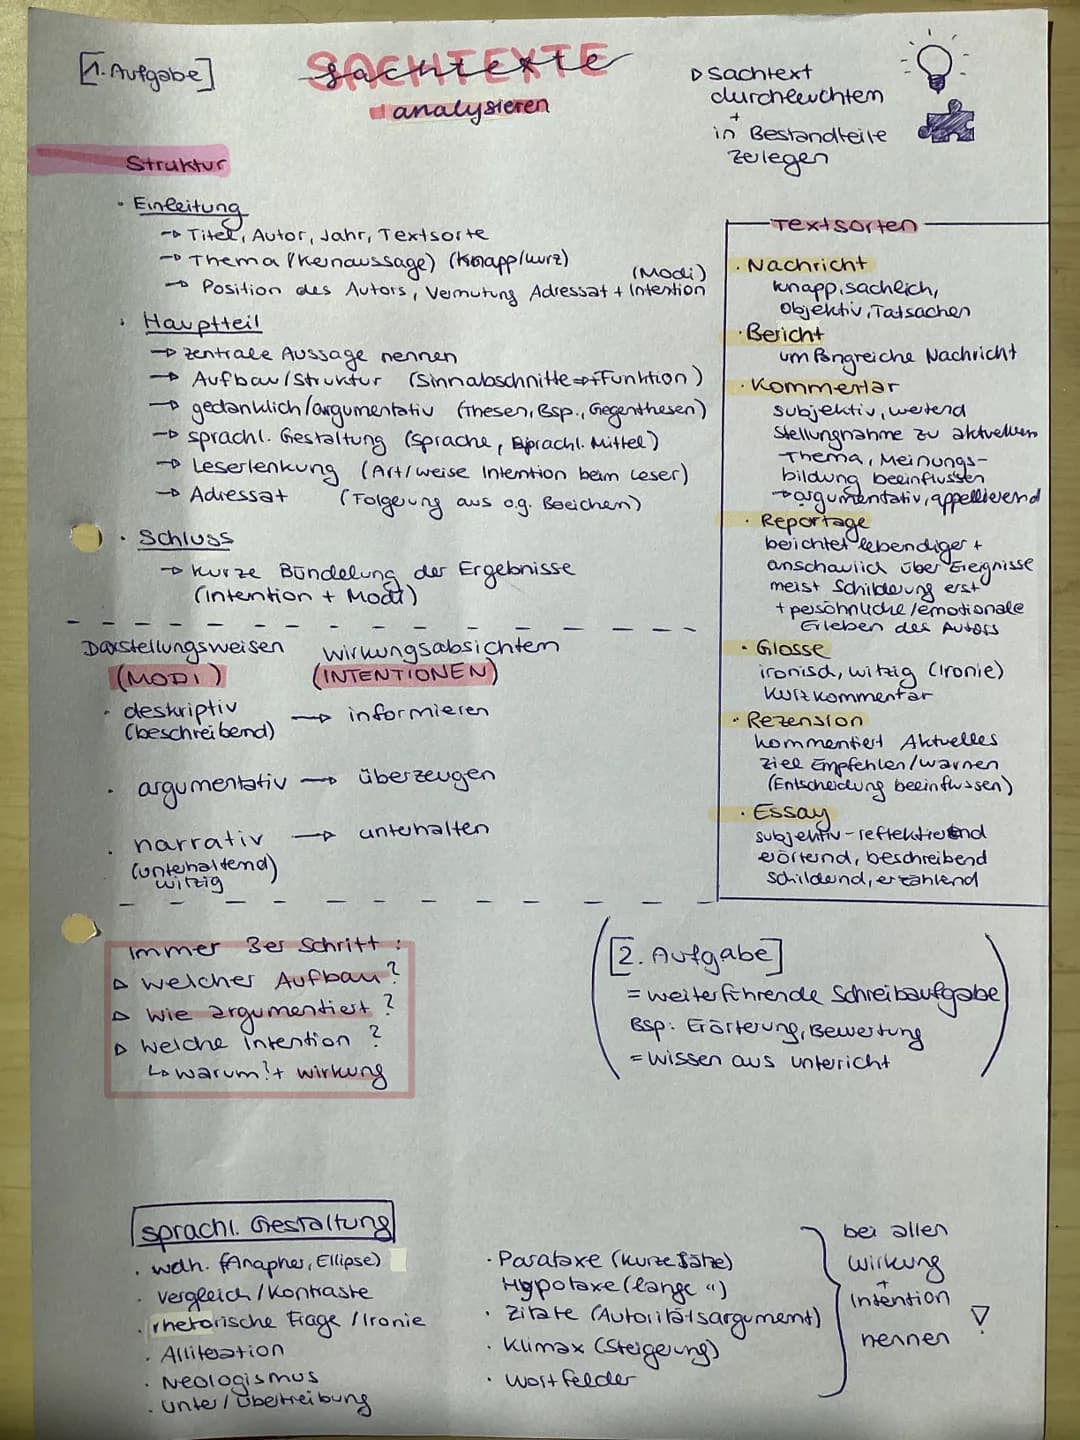 [1. Aufgabe]
SACHTEXTE
sachtexte
analysieren
▷ Sachtext
durchleuchten
+
in Bestandteile
zerlegen
Struktur
· Einleitung
→ Titel, Autor, Jahr, Textsorte
→ Thema (Kernaussage) (knapp/kurz)
→ Position des Autors, Vermutung Adressat + Intention
(Modi)
· Hauptteil
→ zentrale Aussage nennen
→ Aufbau/Struktur (Sinnabschnitte ⇒ + Funktion)
→ gedanklich/argumentativ (Thesen, Bsp., Gegenthesen)
→ sprachl. Gestaltung (Sprache, sprachl. Mittel)
→ Leserlenkung (Art/weise Intention beim Leser)
→ Adressat (Folgerung aus o.g. Bereichen)
· Schluss
→ kurze Bündelung der Ergebnisse
(Intention + Modi)
Textsorten
· Nachricht
knapp, sachlich,
objektiv, Tatsachen
· Bericht
umfangreiche Nachricht
· Kommentar
subjektiv, wertend
Stellungnahme zu aktuellem
Thema, Meinungs-
bildung beeinflussen
→ argumentativ, appellierend
· Reportage
berichtet lebendiger +
anschaulich über Ereignisse
meist Schilderung erst
+ persöhnliche/emotionale
Erleben des Autors
· Glosse
ironisch, witzig (Ironie)
Kurzkommentar
· Rezension
kommentiert Aktuelles
Ziel Empfehlen/warnen
(Entscheidung beeinflussen)
· Essay
subjektiv-reflektierend
erörternd, beschreibend
schildernd, erzählend
Darstellungsweisen
(MODI)
wirkungsabsichten
(INTENTIONEN)
· deskriptiv → informieren
(beschreibend)
· argumentativ → überzeugen
· narrativ → unterhalten
(unterhaltend)
witzig
Immer 3er Schritt:
▷ welcher Aufbau?
▷ wie argumentiert?
▷ welche Intention?
↳ warum? + wirkung
[2. Aufgabe]
= weiterführende Schreibaufgabe
Bsp: Erörterung, Bewertung
= wissen aus unterricht
sprachl. Gestaltung
· wdh. (Anapher, Ellipse)
· vergleich/Kontraste
· rhetorische Frage/Ironie
· Alliteration
· Neologismus
· unter/übertreibung
· Parataxe (kurze Sätze)
Hypotaxe (lange ")
· Zitate (Autoritätsargument)
· Klimax (Steigerung)
· Wortfelder
bei allen
wirkung
+
Intention
nennen !